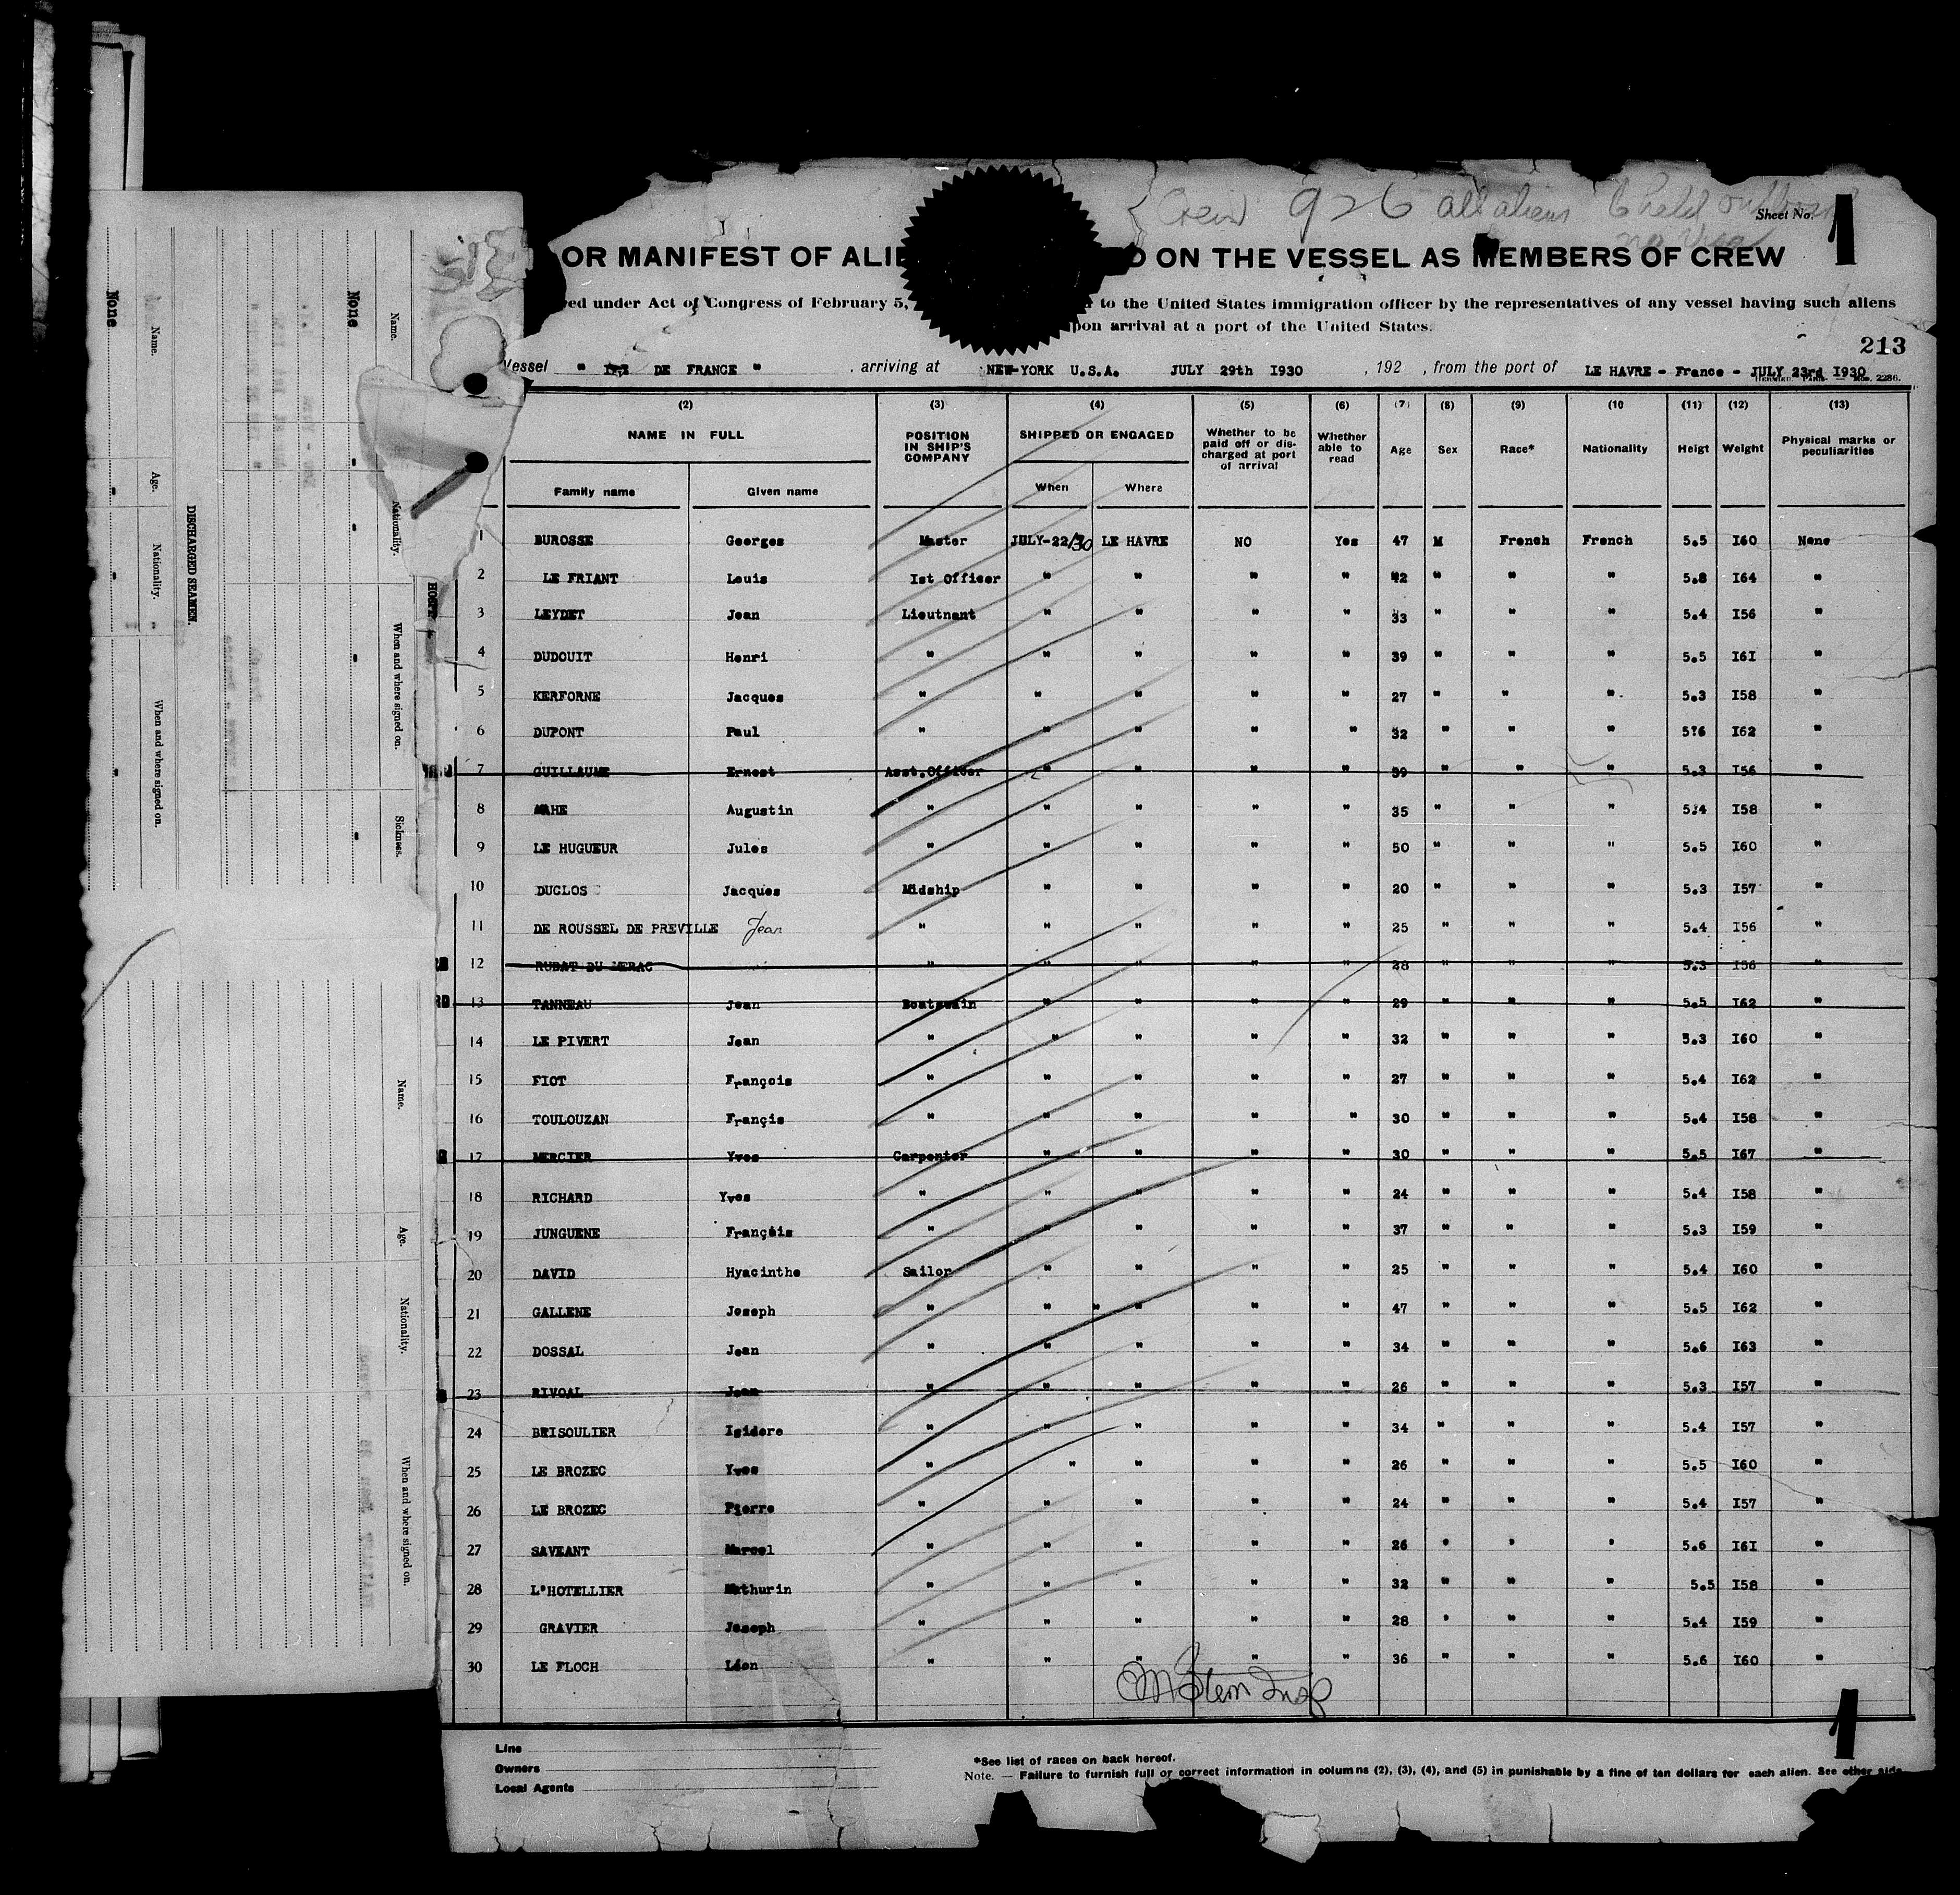 Crew 926 all aliens 6 held
no Visa
Sheet No. 1
OR MANIFEST OF ALIE D ON THE VESSEL AS MEMBERS OF CREW
under Act of Congress of February 5, to the United States immigration officer by the representatives of any vessel having such aliens
upon arrival at a port of the United States.
213
Vessel " DE FRANCE " , arriving at NEW-YORK U.S.A. JULY 29th I930 , 192 , from the port of LE HAVRE - France - JULY 23rd I930
(2) (3) (4) (5) (6) (7) (8) (9) (10 (11) (12) (13)
NAME IN FULL POSITION IN SHIP'S COMPANY SHIPPED OR ENGAGED Whether to be paid off or dis-charged at port of arrival Whether able to read Age Sex Race* Nationality Heigt Weight Physical marks or peculiarities
Family name Given name When Where
1 BUROSSE Georges Master JULY-22/30 LE HAVRE NO Yes 47 M French French 5.5 I60 None
2 LE FRIANT Louis Ist Officer " " " " 42 " " " 5.8 I64 "
3 LEYDET Jean Lieutnant " " " " 33 " " " 5.4 I56 "
4 DUDOUIT Henri " " " " " 39 " " " 5.5 I6I "
5 KERFORNE Jacques " " " " " 27 " " " 5.3 I58 "
6 DUPONT Paul " " " " " 32 " " " 5?6 I62 "
7 GUILLAUME Ernest Asst.Officer " " " " 39 " " " 5.3 I56 "
8 MAHE Augustin " " " " " 35 " " " 5.4 I58 "
9 LE HUGUEUR Jules " " " " " 50 " " " 5.5 I60 "
10 DUCLOS Jacques Midship " " " " 20 " " " 5.3 I57 "
11 DE ROUSSEL DE PREVILLE Jean " " " " " 25 " " " 5.4 I56 "
12 RUDAT DU MERAC " " " " " 28 " " " 5.3 I56 "
13 TANNEAU Jean Boatswain " " " " 29 " " " 5.5 I62 "
14 LE PIVERT Jean " " " " " 32 " " " 5.3 I60 "
15 FIOT François " " " " " 27 " " " 5.4 I62 "
16 TOULOUZAN Françis " " " " " 30 " " " 5.4 I58 "
17 MERCIER Yves Carpenter " " " " 30 " " " 5.5 I67 "
18 RICHARD Yves " " " " " 24 " " " 5.4 I58 "
19 JUNGUENE François " " " " " 37 " " " 5.3 I59 "
20 DAVID Hyacinthe Sailor " " " " 25 " " " 5.4 I60 "
21 GALLENE Joseph " " " " " " 47 " " " 5.5 I62 "
22 DOSSAL Jean " " " " " 34 " " " 5.6 I63 "
23 RIVOAL Jean " " " " " 26 " " " 5.3 I57 "
24 BRISOULIER Isidore " " " " " 34 " " " 5.4 I57 "
25 LE BROZEC Yves " " " " " 26 " " " 5.5 I60 "
26 LE BROZEC Pierre " " " " " 24 " " " 5.4 I57 "
27 SAVEANT Marcel " " " " " 26 " " " 5.6 I6I "
28 L'HOTELLIER Mathurin " " " " " 32 " " " 5.5 I58 "
29 GRAVIER Joseph " " " " " 28 " " " 5.4 I59 "
30 LE FLOCH Léon " " " " " 36 " " " 5.6 I60 "
Stern Insp
Line
Owners
Local Agents
*See list of races on back hereof.
Note. — Failure to furnish full or correct information in columns (2), (3), (4), and (5) in punishable by a fine of ten dollars for each alien. See other side
1
None
None
Name. Age. Nationality. When and where signed on.
DISCHARGED SEAMEN.
Name. Nationality. When and where signed on. Sickness.
Name. Age. Nationality. When and where signed on.